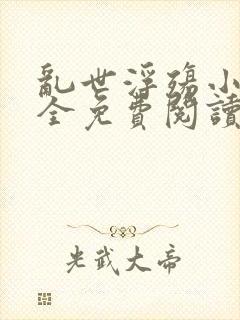 亂世浮殤小
全免費閱讀
光武大帝